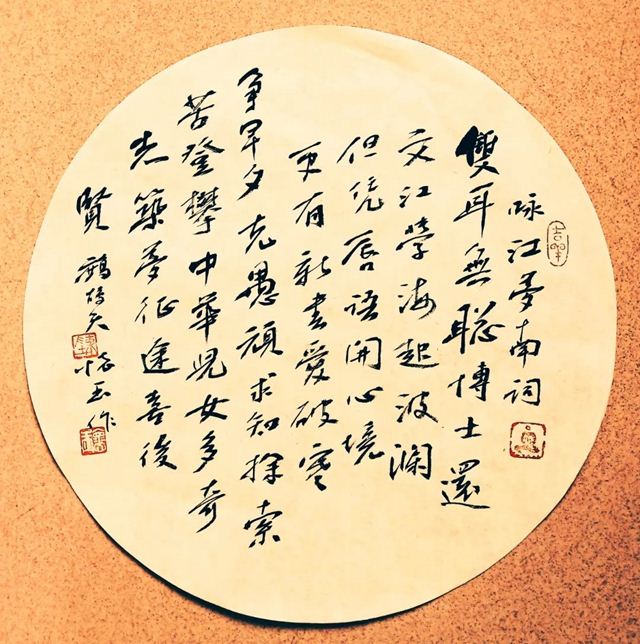 咏江夢南词
雙耳無聪博士還
文江學海起波瀾
但凭唇语開心境
更有新書愛破寒
争早夕克愚頑求知探索
苦登攀中華兒女多奇
志築夢征途喜後
賢 鷓鴣天 玉作